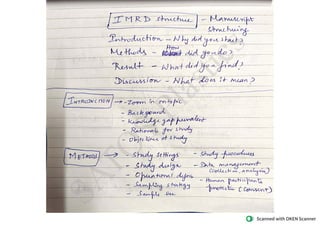 IMRD structure - Manuscript
structuring
Introduction - Why did you start?
Methods - How did you do?
Result - What did you find?
Discussion - What does it mean?
INTRODUCTION → - Zoom in on topic
- Background
- Knowledge gap prevalent
- Rationale for study
- Objectives of study
METHODS → - Study settings - Study procedures
- Study design - Data management
(collection, analysis)
- Operational defns - Human participants
protection (consent)
- Sampling strategy
- Sample size
Scanned with OKEN Scanner